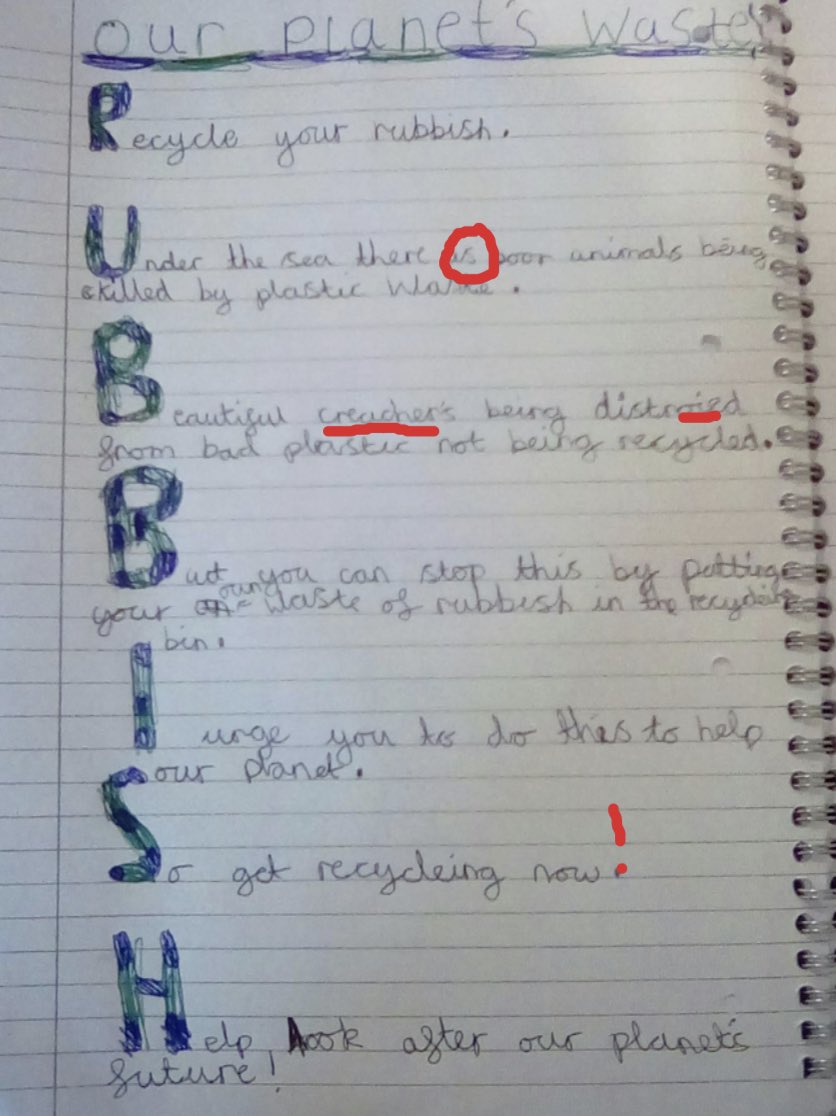 our planet's waste
Recycle your rubbish.
Under the sea there is poor animals being
killed by plastic waste.
Beautiful creacher's being distroied
from bad plastic not being recycled.
But you can stop this by putting
your own waste of rubbish in the recycleing
bin.
I urge you to do this to help
our planet.
So get recycleing now!
Help look after our planet's
future!